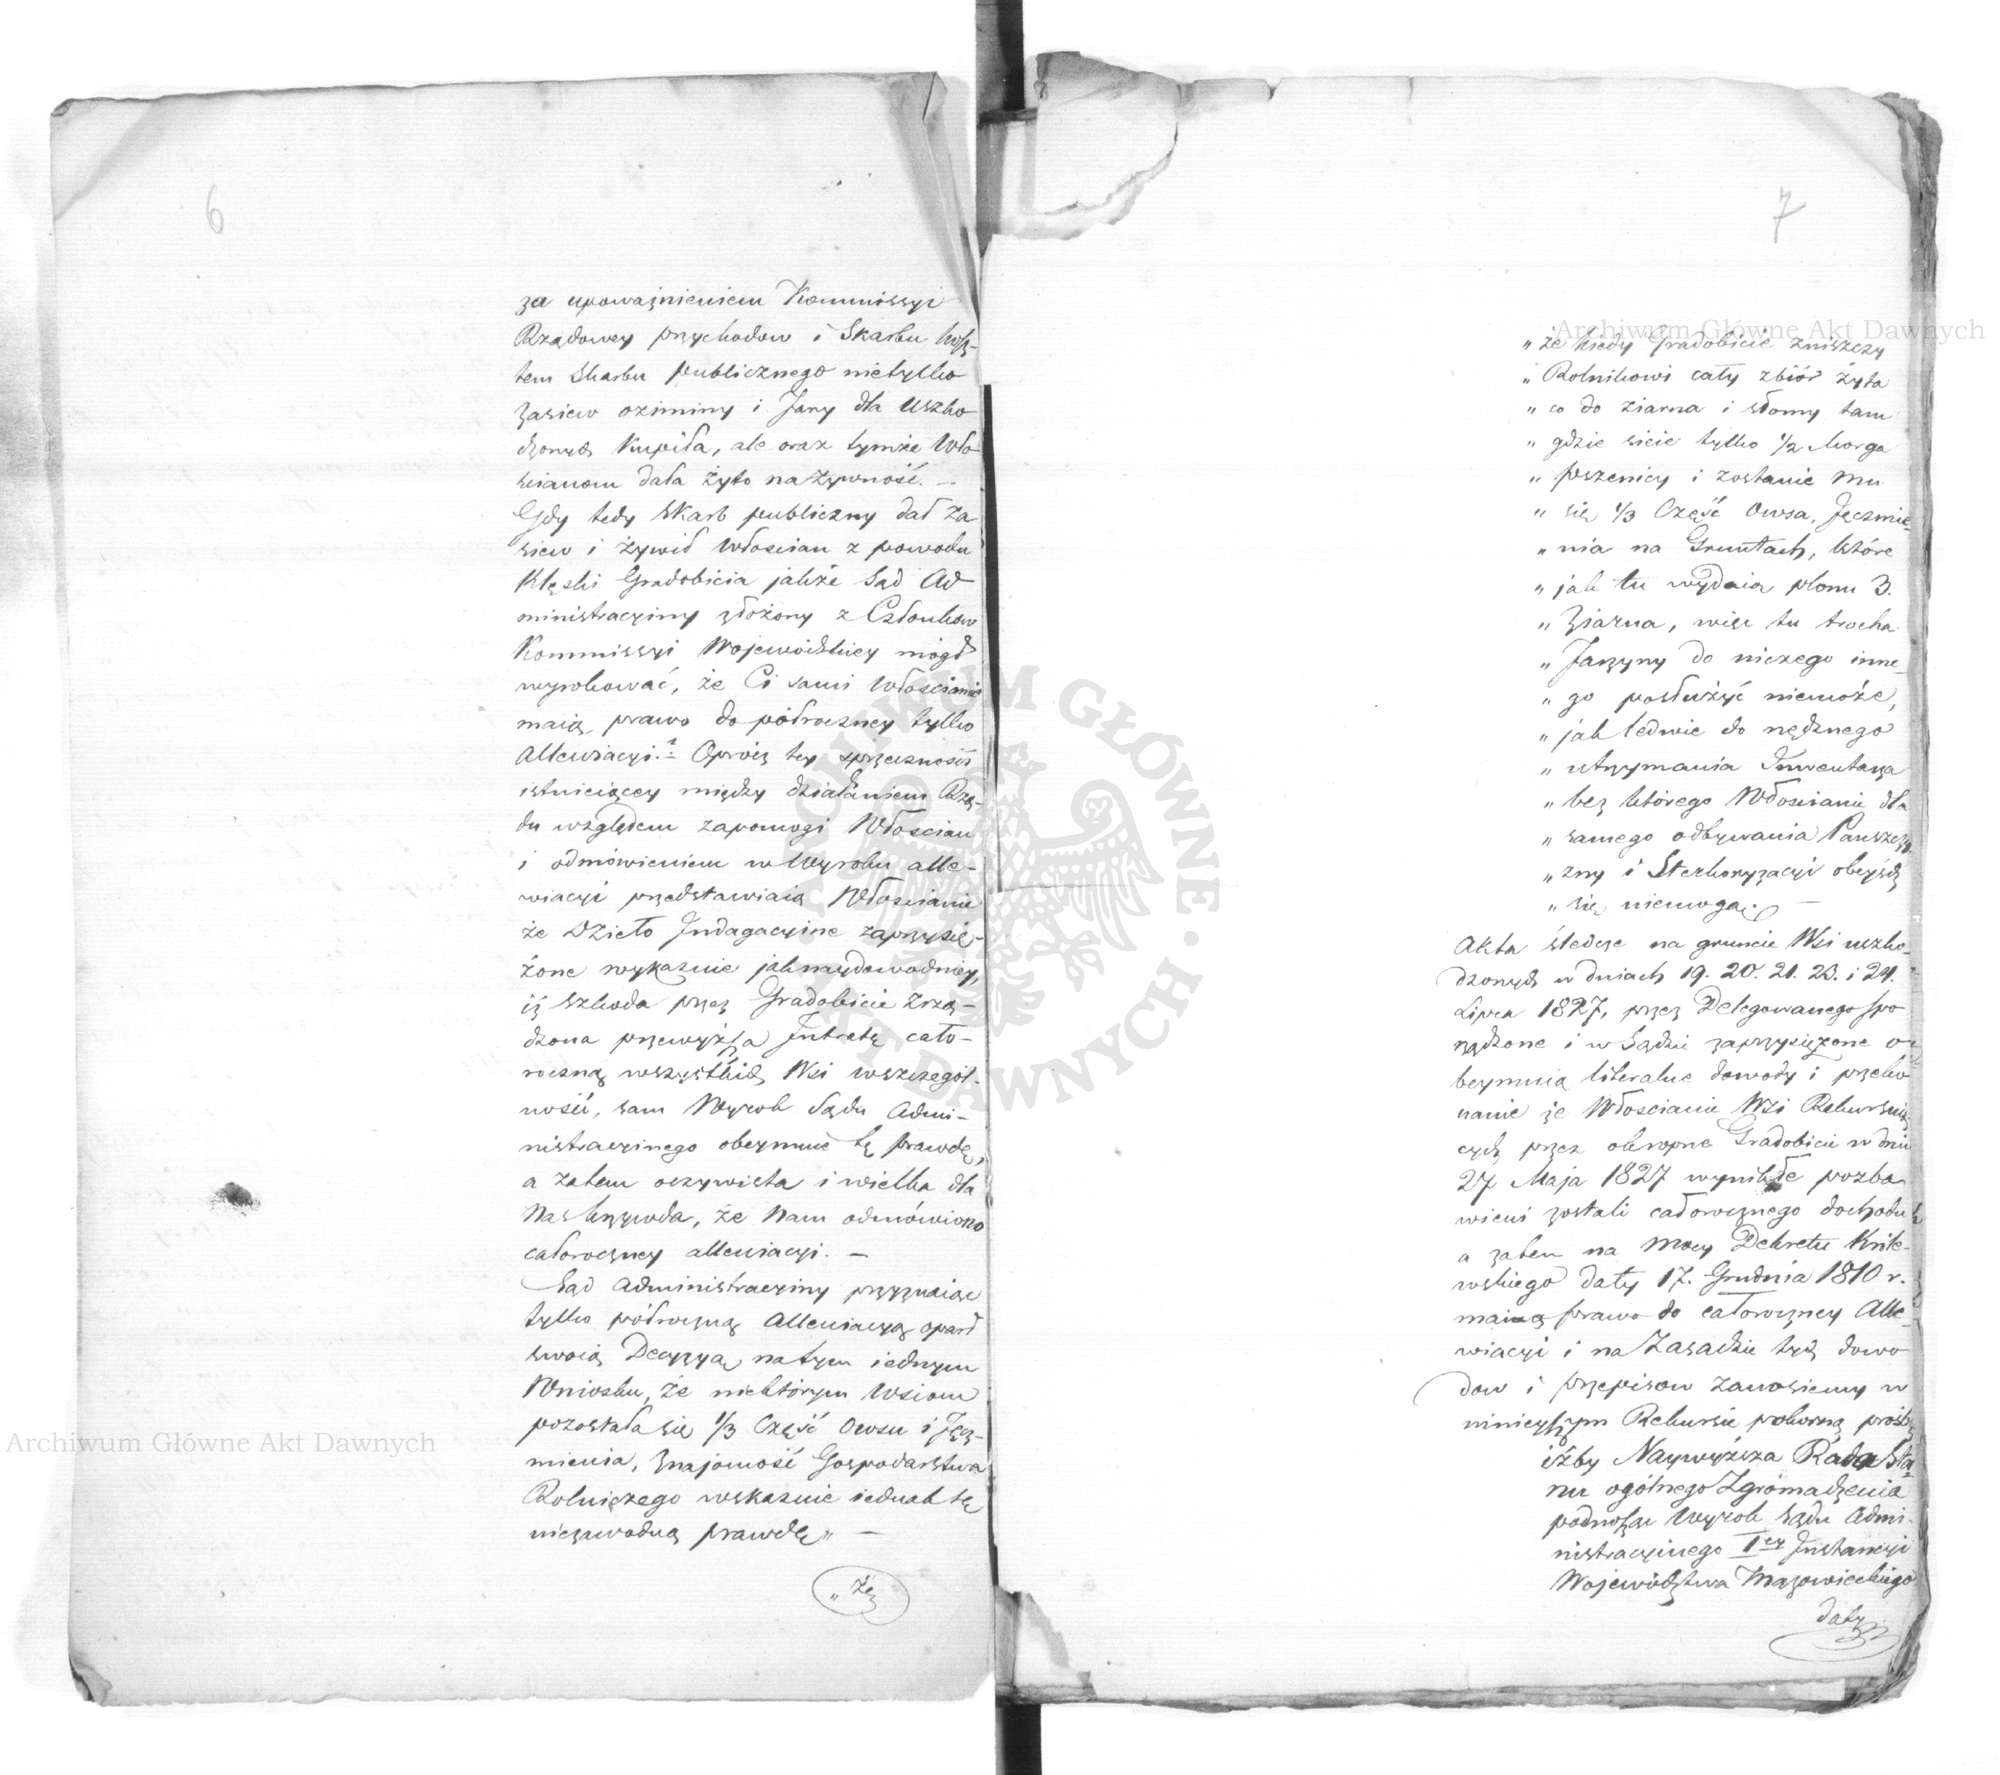 6
za upoważnieniem Kommissyi
Rządowey przychodow i Skarbu kosz-
tem Skarbu publicznego nietylko
zasiew oziminy i Jary dla Uszko
dzonych kupiła, ale oraz tymże Wło
scianom dała żyto na żywność. —
Gdy tedy Skarb publiczny dał za
siew i żywił Włoscian z powodu
Klęski Gradobicia jakże Sąd Ad
ministracyiny złożony z Członkow
Kommissyi Wojewódzkiey mógł
wyrokować, że Ci sami Włoscianie
maią prawo do półroczney tylko
Allewiacyi. Oprócz tey sprzeczności
istnieiącey między działaniem Rzą-
du względem zapomogi Włoscian
i odmówieniem w Wyroku alle-
wiacyi przedstawiaią Włoscianie
że Dzieło Indagacyine zaprzysię-
żone wykazuie jaknaydowodniey,
iż szkoda przez Gradobicie zrzą-
dzona przewyższa Intratę cało-
roczną wszystkich Wsi wszczegól-
ności, sam Wyrok Sądu Admi-
nistracyinego obeymuie tę prawdę,
a zatem oczywista i wielka dla
Nas krzywda, że Nam odmówiono
całoroczney allewiacyi. —
Sąd Administracyiny przyznaiąc
tylko półroczną Allewiacyą oparł
swoią Decyzyą na tym iednym
Wniosku, że niektórym Wsiom
pozostała się 1/3 Część Owsu i Jęcz-
mienia, znajomość Gospodarstwa
Rolniczego wskazuie iednak tę
niezawodną prawdę „ —
„ że
7
„ że kiedy Gradobicie zniszczy
„ Rolnikowi cały zbiór żyta
„ co do ziarna i słomy tam
„ gdzie sieie tylko 1/2 Morga
„ pszenicy i zostanie mu
„ się 1/3 Część Owsa, Jęczmie-
„ nia na Gruntach, które
„ jak tu wydaią plonu 3.
„ Ziarna, więc ta trocha
„ Jarzyny do niczego inne-
„ go posłużyć niemoże,
„ jak ledwie do nędznego
„ utrzymania Inwentarza
„ bez którego Włoscianie dla
„ samego odbywania Panszczy-
„ zny i Sterkoryzacyi obeyśdź
„ się niemogą. —
Akta śledcze na gruncie Wsi uszko-
dzonych w dniach 19. 20. 21. 23. i 24.
Lipca 1827, przez Delegowanego spo
rządzone i w Sądzie zaprzysiężone o-
beymuią literalne dowody i przeko
nanie że Włoscianie Wsi Rekursuią
cych przez okropne Gradobicie w dniu
27 Maja 1827 wynikłe pozba
wieni zostali całorocznego dochodu
a zatem na Mocy Dekretu Królе-
wskiego daty 17. Grudnia 1810 r.
maią prawo do całoroczney Alle-
wiacyi i na Zasadzie tych dowo
dow i przepisow zanosiemy w
ninieyszym Rekursie pokorną prośbę
iżby Naywyższa Rada Sta-
nu ogólnego Zgromadzenia
podnosząc Wyrok Sądu Admi-
nistracyinego Iey Instancyi
Województwa Mazowieckiego
daty
Archiwum Główne Akt Dawnych
Archiwum Główne Akt Dawnych
ARCHIWUM GŁÓWNE · AKT DAWNYCH ·